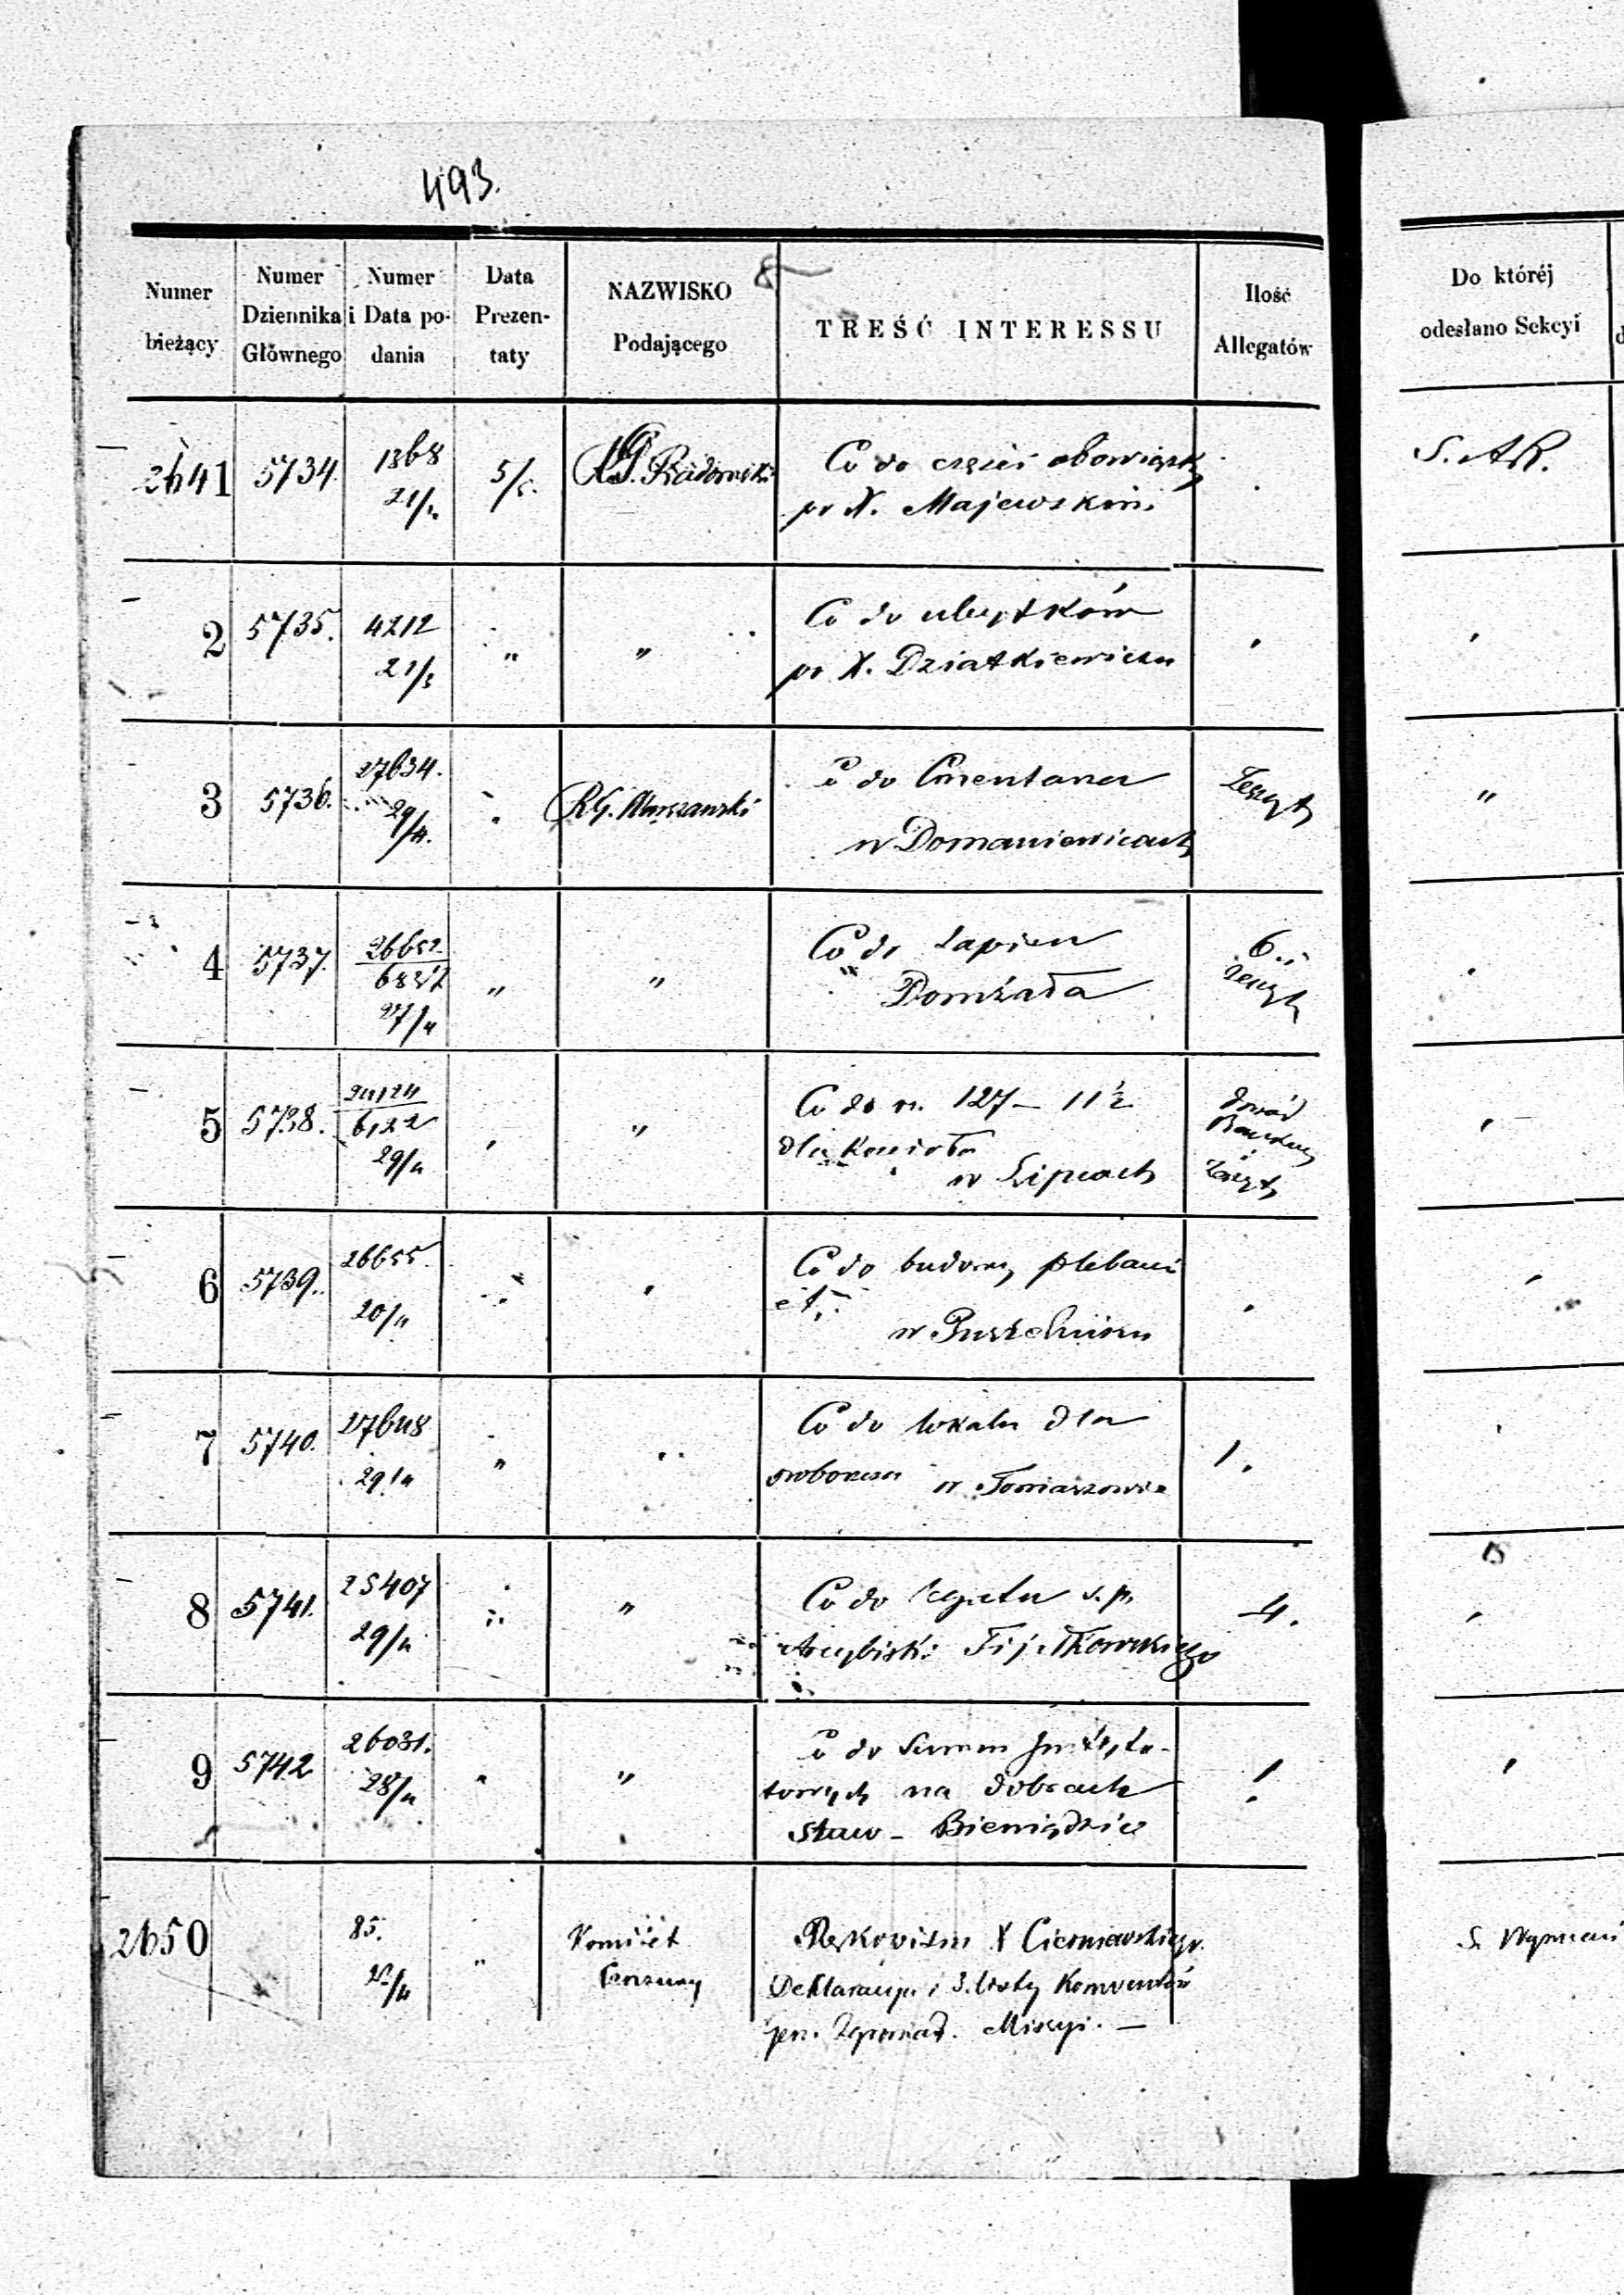 493.
Numer bieżący | Numer Dziennika Głównego | Numer i Data podania | Data Prezentaty | NAZWISKO Podającego | TREŚĆ INTERESSU | Ilość Allegatów | Do któréj odesłano Sekcyi
2641 | 5734. | 1368 21/4 | 5/5. | R.G. Radomski | Co do części obowiązk. | S. AR.
po X. Majewskim
2 | 5735. | 4212 21/3 | „ | „ | Co do ubytków
po X. Dziatkiewiczu
3 | 5736. | 27634. 29/4. | R.G. Warszawski | Co do Cmentarza | Zeszyt | „
w Domaniewicach
4 | 5737. | 26652 6832 27/4 | „ | „ | Co do | 6. i zeszyt
Domżała
5 | 5738. | 24124 6122 29/4 | „ | Co do rs. 127 – 11½ | dowód Bankowy i Zeszyt
dla Kościoła
w Lipcach
6 | 5739. | 26655. 20/4 | Co do budowy plebanii
et.
w
7 | 5740. | 27648 29/4 | „ | Co do lokalu dla | 1.
w Tomaszowie
8 | 5741. | 25407 29/4 | „ | Co do legatu s.p. | 4.
Arcybisk: Fijałkowskiego
9 | 5742 | 26031. 28/4 | „ | Co do Summ Insty.tu- | 1.
towych na dobrach
Staw – Bieniędzice
2650 | 85. 22/4 | „ | Komitet Cenzury | Rękopism X Cierniewskiego | S. Wyznań
Deklaracya i 3. listy Konwentów
Zgromad. Missyi. —